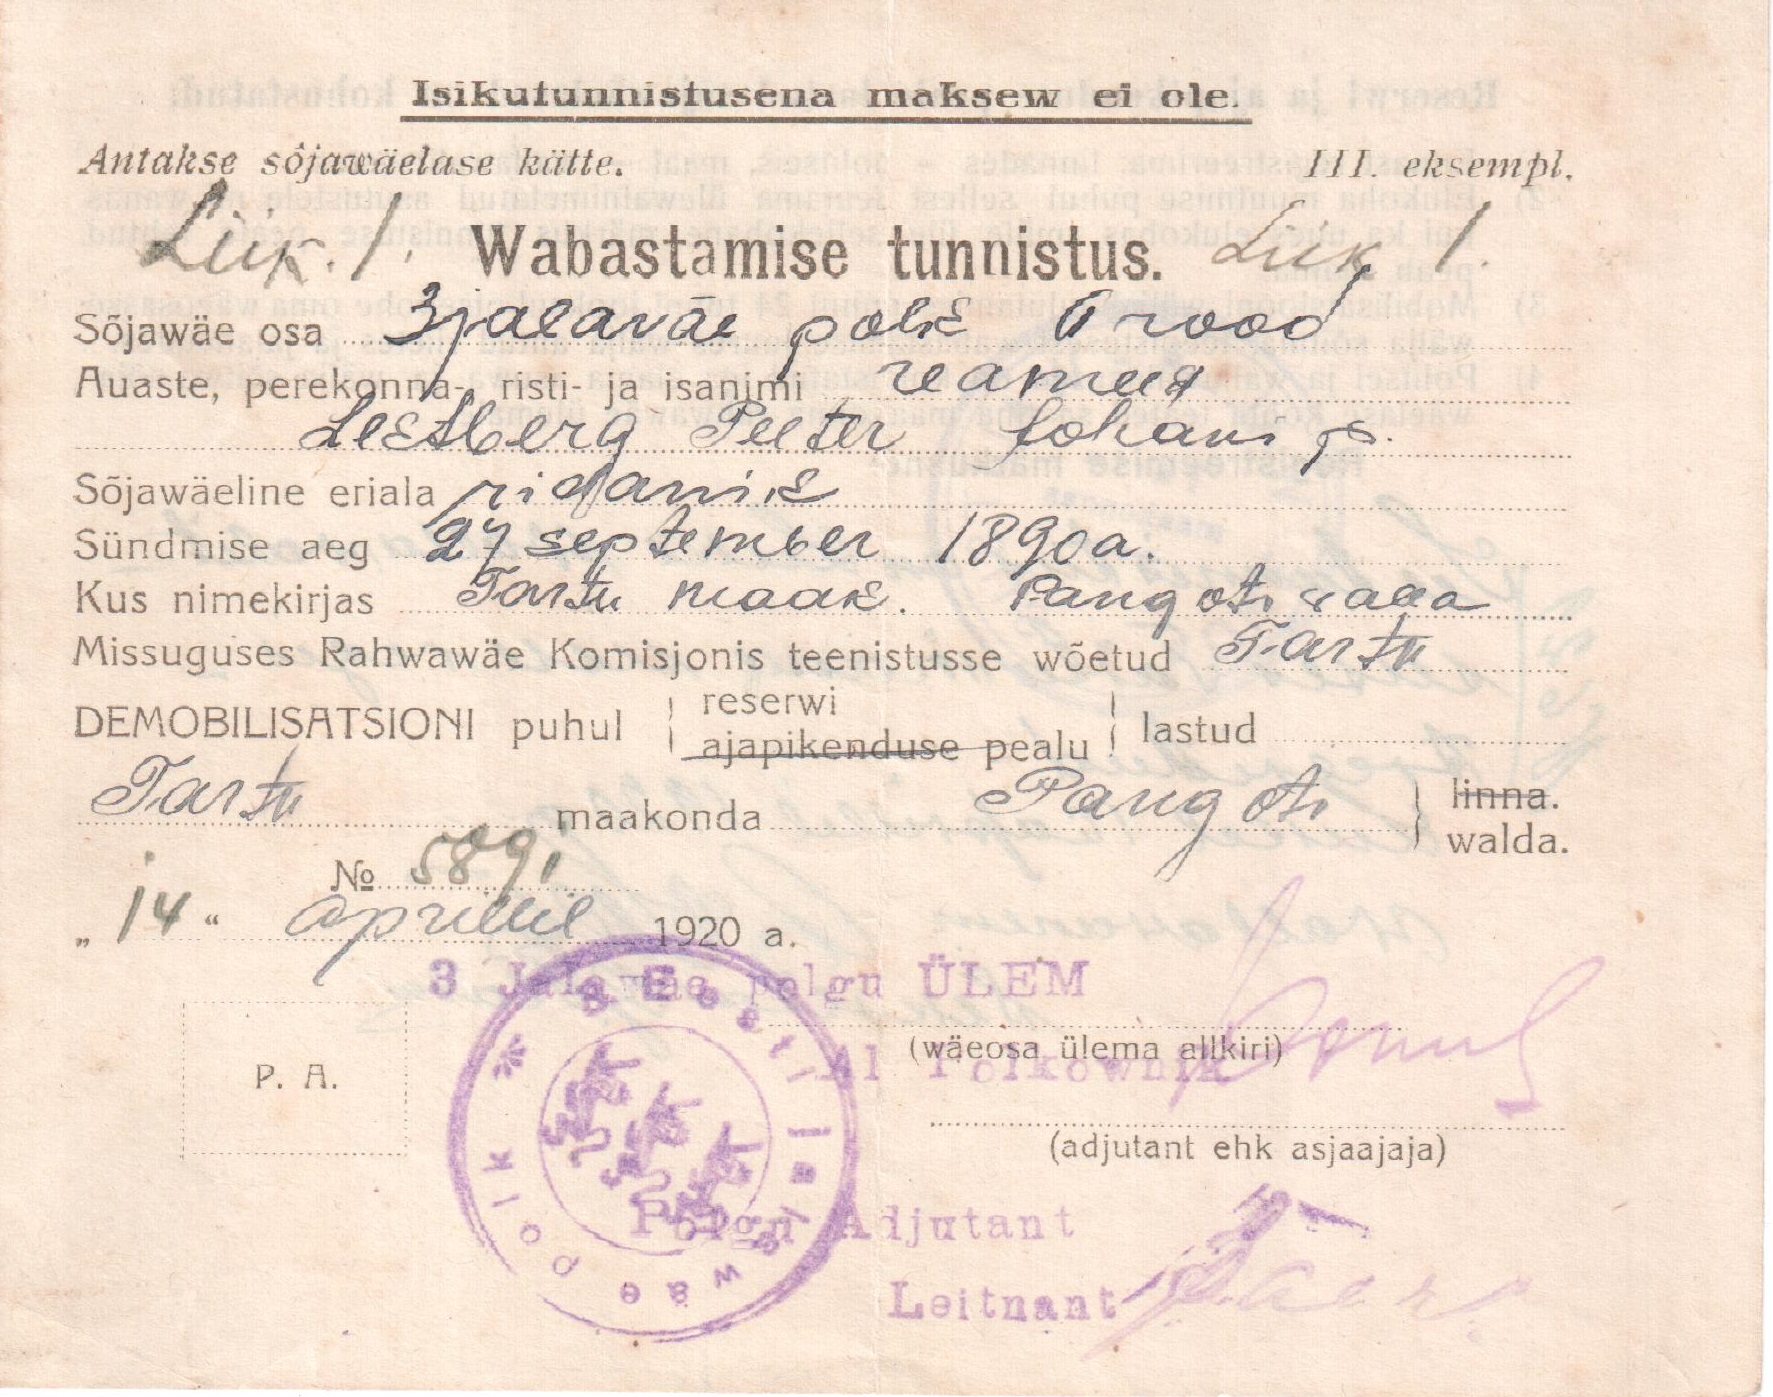 Isikutunnistusena maksew ei ole.
Antakse sõjawäelase kätte. III. eksempl.
Liik. 1. Wabastamise tunnistus. Liik 1.
Sõjawäe osa 3 jalaväe polk rood
Auaste, perekonna-, risti- ja isanimi reamees
Lestberg Peeter Johani p.
Sõjawäeline eriala ridamik
Sündmise aeg 27 september 1890 a.
Kus nimekirjas Tartu maak. Pangoti valla
Missuguses Rahwawäe Komisjonis teenistusse wõetud Tartu
DEMOBILISATSIONI puhul reserwi ajapikenduse pealu lastud
Tartu maakonda Pangoti linna. walda.
№ 5891
„14“ aprillil 1920 a.
3 Jalawäe polgu ÜLEM
(wäeosa ülema allkiri)
Al Polkownik
P. A.
(adjutant ehk asjaajaja)
Polgu Adjutant
Leitnant
3 Eesti jalawäe polk